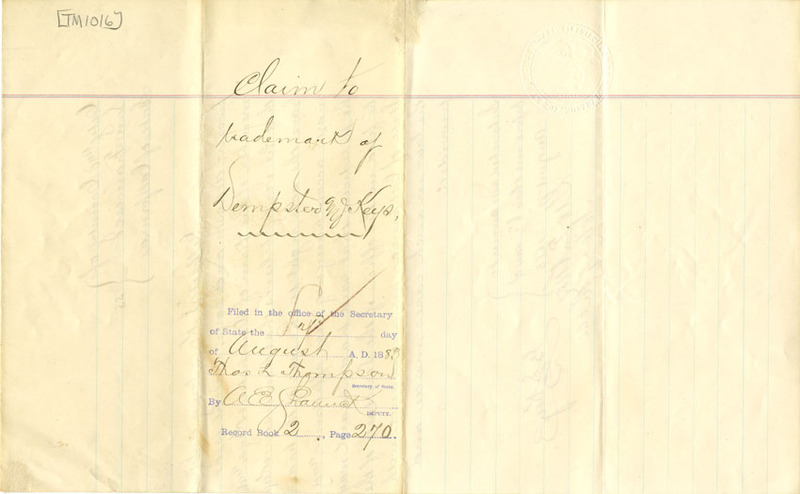 [TM1016]
Claim to
trademark of
Dempster & Keys,
Filed in the office of the Secretary
of State the day
of August A. D. 188
Thos L Thompson
Secretary of State.
By A E
DEPUTY.
Record Book 2, Page 270.